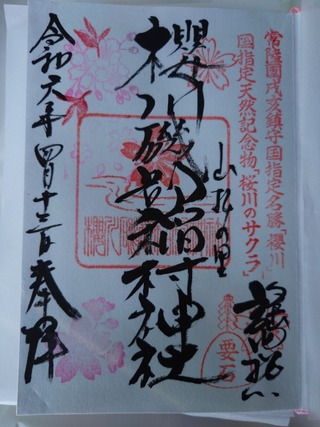 常陸國戌亥鎮守国指定名勝「櫻川」
国指定天然記念物「桜川のサクラ」
山桜の里
櫻川磯部稲村神社
要石
令和六年四月十三日奉拝